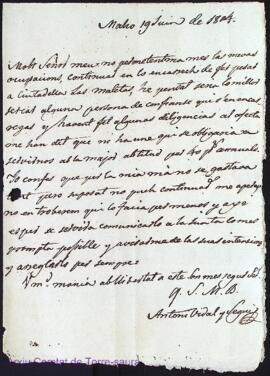 Mahó 19 Juin de 1804.
Molt Señor meu no permetentme mes las mevas
ocupacions, continuar en lo encarrech de fer pasar
a Ciutadella Las Maletas, he pensat seria millor
sercar alguna persona de confianse que s'encarre-
gas y havent fet algunas diligencias al efecte
me han dit que no ha une que se obligaria
servirnos ab la major puntualitat per anuals.
Jo confes que per la mia ma no se gastava
tant pero suposat no puch continuar me apar que
no en trobarem qui lo facia per menos y axi
esper se servirà comunicarlo a la Junta lo mes
prompte posible y avisarme de las suas intencions
y arreglarlo per sempre.
Vm. mania ab llibertat a este son mes segur Ser.
q. S. M. B.
Antoni Vidal y Seguí
Arxiu Comtat de Torre-saura